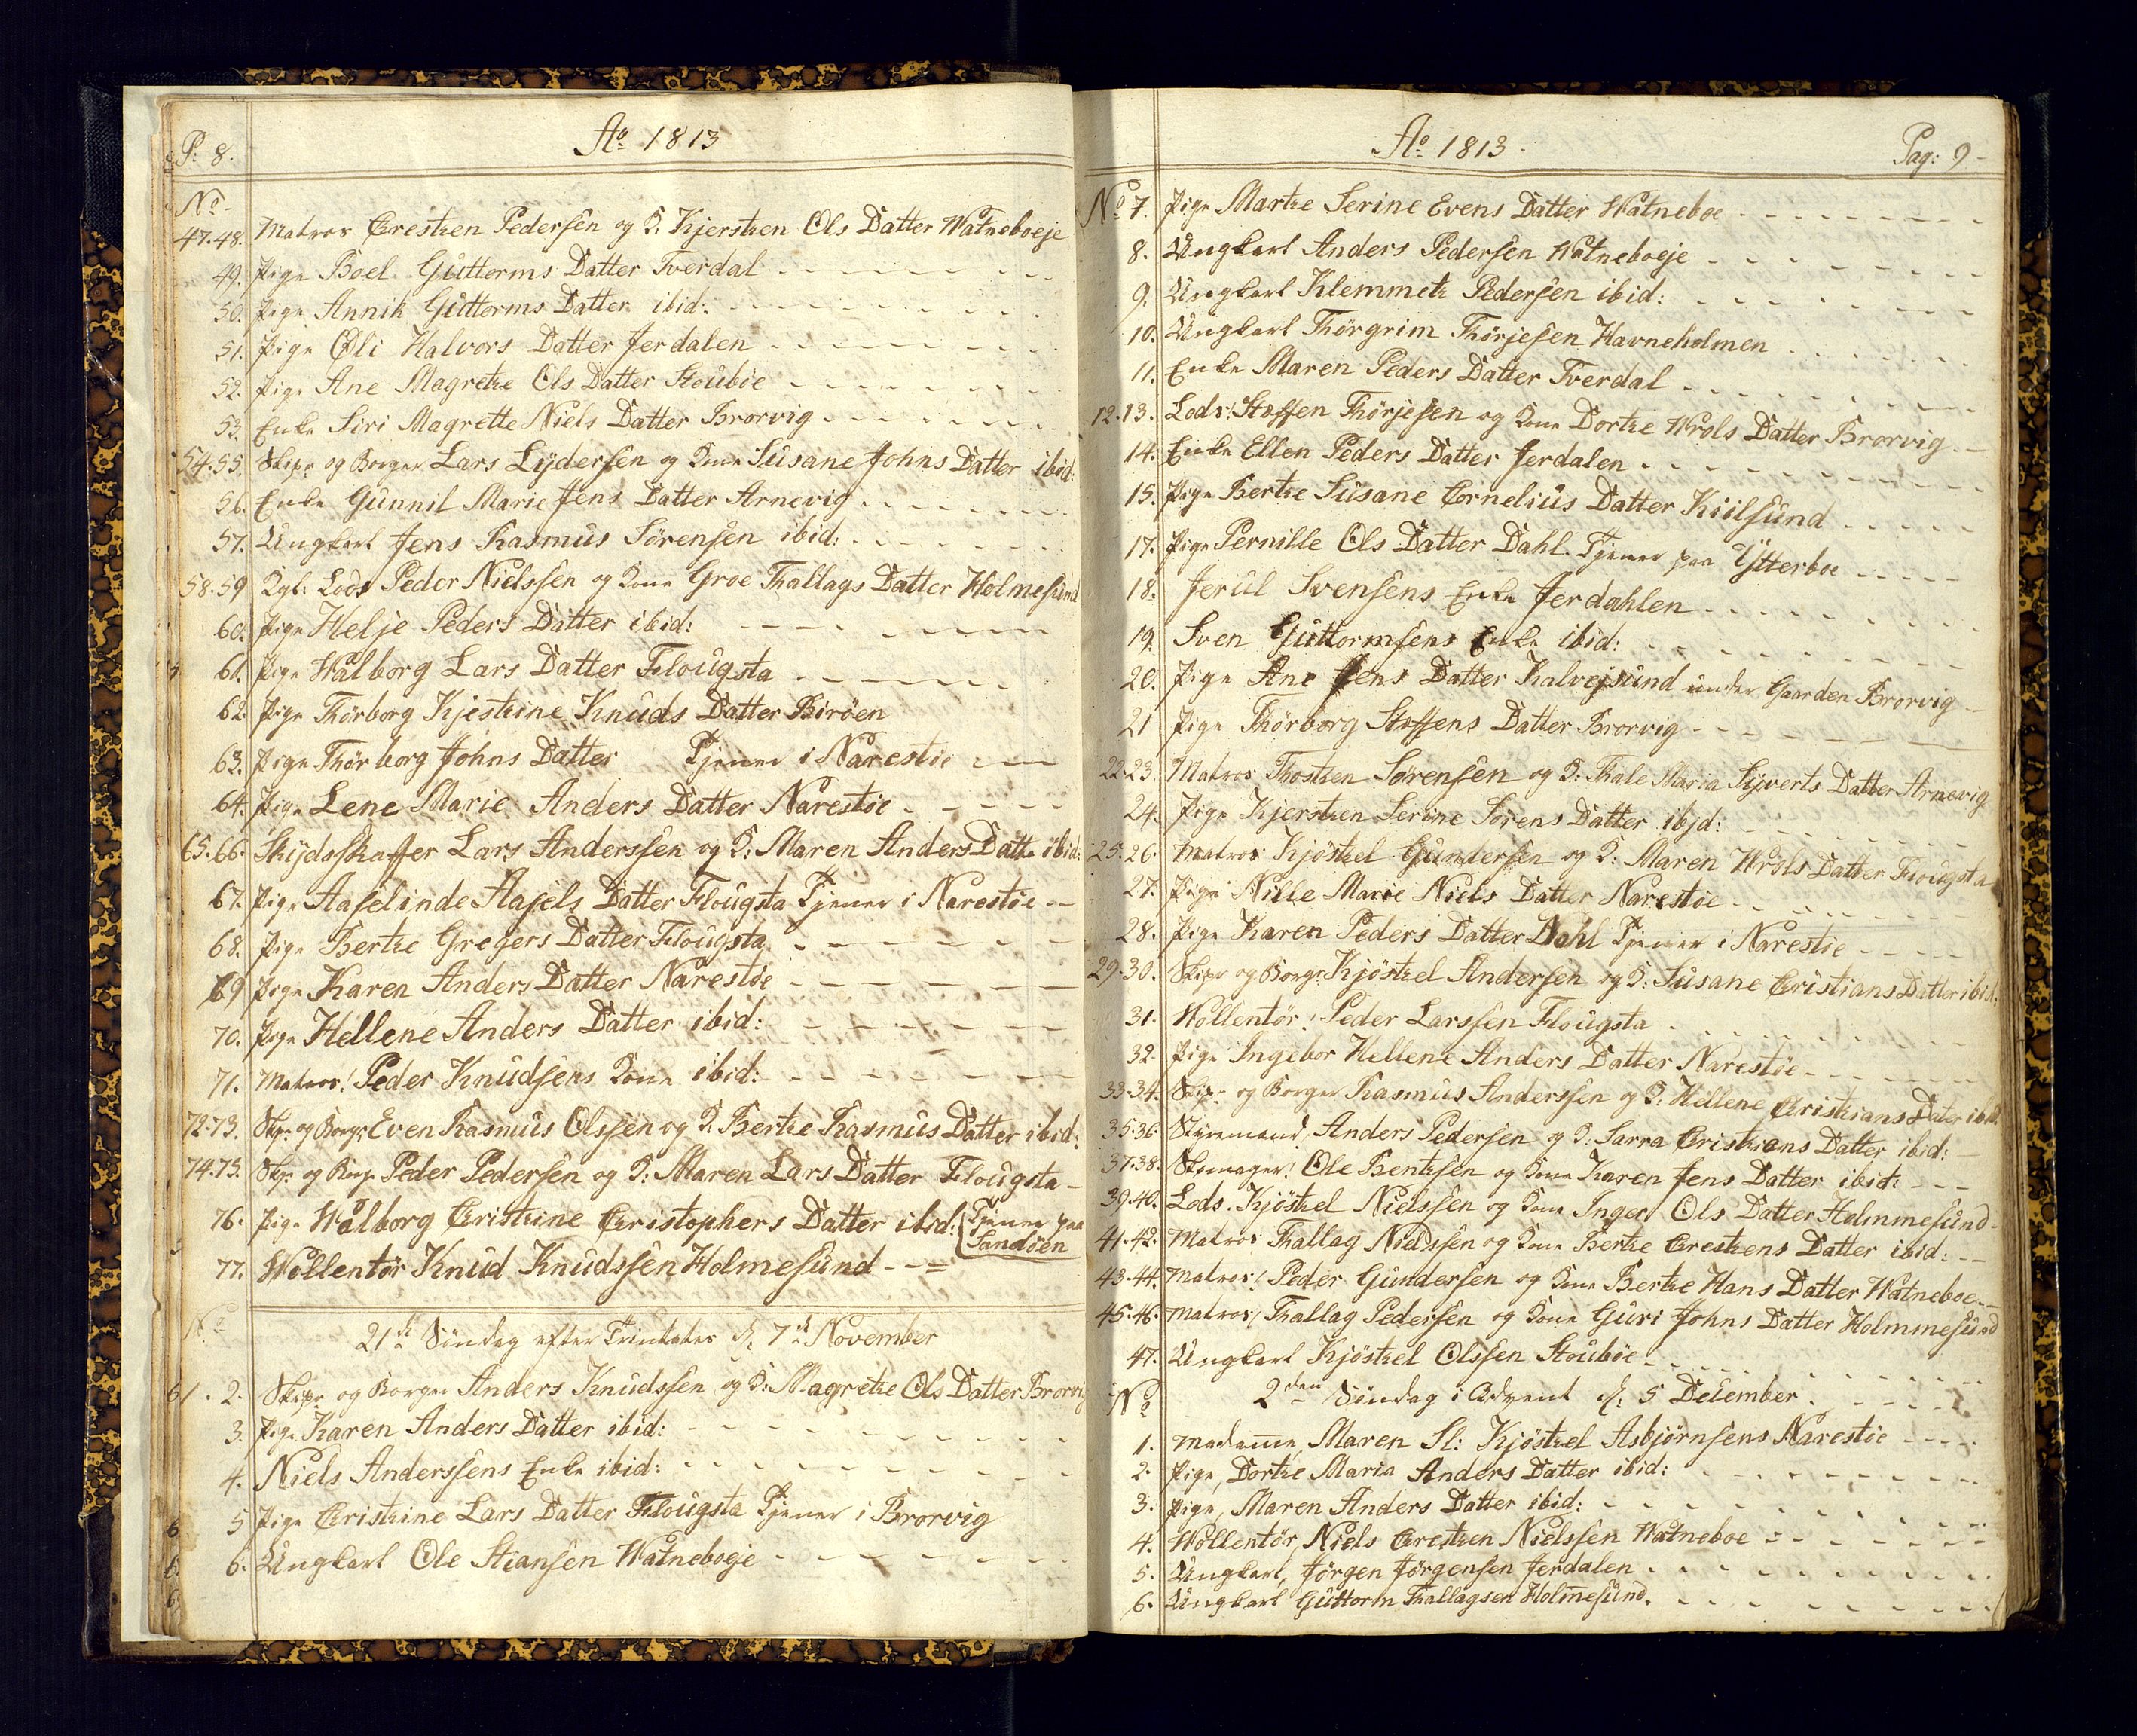 P: 8.
Ao 1813
No
47.48. Matros Crestken Pedersen og K. Kjerstken Ols Datter Watneboeje
49. Pige Boel Gutterms Datter Tverdal
50. Pige Annik Guttorms Datter ibid:
51. Pige Oli Halvors Datter Jerdalen
52. Pige Ane Magrethe Ols Datter Stouböe
53. Enke Siri Magrette Niels Datter Brorvig
54.55. Skipr og Borger Lars Lydersen og Kone Susane Johns Datter ibid:
56. Enke Gunnil Marie Jens Datter Arnevig
57. Ungkarl Jens Rasmus Sörensen ibid:
58.59 Kgl: Lods Peder Nielssen og Kone Groe Thallags Datter Holmesund
60. Pige Helje Peders Datter ibid:
61. Pige Walborg Lars Datter Flougsta
62. Pige Thörborg Kjestine Knuds Datter Biröen
63. Pige Thörborg Johns Datter Tjener i Narestöe
64. Pige Lene Marie Anders Datter Narestöe
65.66. Skydsskaffer Lars Anderssen og K: Maren Anders Datter ibid:
67. Pige Aaselinde Aasels Datter Flougsta Tjener i Narestöe
68. Pige Berthe Gregers Datter Flougsta
69 Pige Karen Anders Datter Narestöe
70. Pige Hellene Anders Datter ibid:
71. Matros: Peder Knudsens Kone ibid:
72.73. Skpr: og Borgr Even Rasmus Olssen og K. Berthe Rasmus Datter ibid:
74.75. Skpr: og Borgr Peder Pedersen og K: Maren Lars Datter Flougsta
76. Pige Walborg Cristine Cristophers Datter ibid: Tjener paa
Sandöen
77. Wollentör Knud Knudssen Holmesund
No
21de Söndag efter Trinitates d. 7de November
1. 2. Skipr og Borger Anders Knudssen og K: Magrethe Ols Datter Brorvig
3. Pige Karen Anders Datter ibid:
4. Niels Anderssens Enke ibid:
5 Pige Cristine Lars Datter Flougsta Tjener i Brorvig
6. Ungkarl Ole Stiansen Watneboeje
Ao 1813
Pag: 9
No 7. Pige Marthe Serine Evens Datter Watneboe
8. Ungkarl Anders Pedersen Watneboeje
9. Ungkarl Klemmeth Pedersen ibid:
10. Ungkarl Thörgrim Thörjesen Havneholmen
11. Enke Maren Peders Datter Tverdal
12.13. Lods: Steffen Thörjesen og Kone Dorthe Wrols Datter Brorvig
14. Enke Ellen Peders Datter Jerdalen
15. Pige Berthe Susane Cornelius Datter Kiilsund
17. Pige Pernille Ols Datter Dahl Tjener paa Ytterboe
18. Jerul Svensens Enke Jerdahlen
19. Sven Guttormsens Enke ibid:
20. Pige Ane Jens Datter Kalvejsund under Gaarden Brorvig
21 Pige Thörborg Steffens Datter Brorvig
22.23. Matros Thosten Sörensen og K: Thale Maria Syverts Datter Arnevig
24. Pige Kjersthen Serine Sörens Datter ibid:
25.26. Matros Kjösthel Gundersen og K: Maren Wrols Datter Flougsta
27. Pige Nille Marie Niels Datter Narestöe
28. Pige Karen Peders Datter Dahl Tjener i Narestöe
29.30. Skipr og Borgr Kjösthel Andersen og K: Susane Cristians Datter ibid:
31. Wollentör: Peder Larssen Flougsta
32. Pige Ingebor Hellene Anders Datter Narestöe
33.34. Skipr og Borger Rasmus Anderssen og K: Hellene Cristians Dater ibid:
35.36. Styremand, Anders Pedersen og K: Sarra Cristians Datter ibid:
37.38. Skomager: Ole Benthsen og Kone Karen Jens Datter ibid:
39.40. Lods. Kjösthel Nielssen og Kone Inger Ols Datter Holmmesund
41.42. Matros Thallag Nielssen og Kone Berthe Cresthens Datter ibid:
43.44. Matros: Peder Gundersen og Kone Berthe Hans Datter Watneboe
45.46. Matros, Thallag Pedersen og Kone Guri Johns Datter Holmmesund
47. Ungkarl Kjösthel Olssen Stouböe
No 2den Söndag i Advent d: 5 December
1. Madame, Maren Sl: Kjösthel Asbjörnsens Narestöe
2. Pige, Dorthe Maria Anders Datter ibid:
3. Pige, Maren Anders Datter ibid:
4. Wollentör, Niels Cresthen Nielssen Watneboe
5. Ungkarl, Jörgen Jörgensen Jerdalen
6. Ungkarl Guttorm Thallagsen Holmesund.